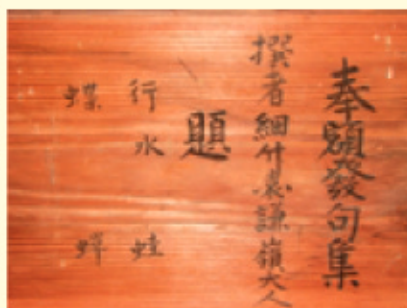 奉額發句集
撰者細竹庵謙嶺大人
題
行水 蛙
蝶 蝉